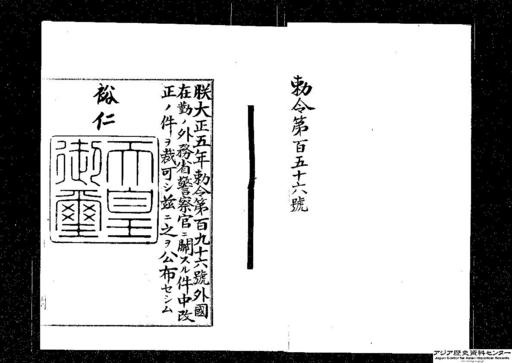 勅令第百五十六號
朕大正五年勅令第百九十六號外國
在勤ノ外務省警察官ニ關スル件中改
正ノ件ヲ裁可シ茲ニ之ヲ公布セシム
裕仁
天皇
御璽
アジア歴史資料センター
Japan Center for Asian Historical Records